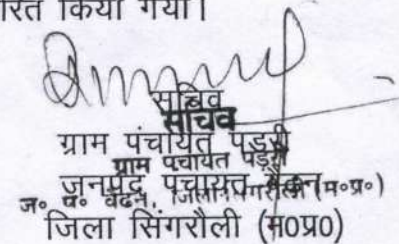 रित किया गया।
सचिव
सचिव
ग्राम पंचायत पड़री
ग्राम पंचायत पड़री
जनपद पंचायत बैढ़न
ज० पं० बैढ़न, जिला सिंगरौली (म०प्र०)
जिला सिंगरौली (म0प्र0)